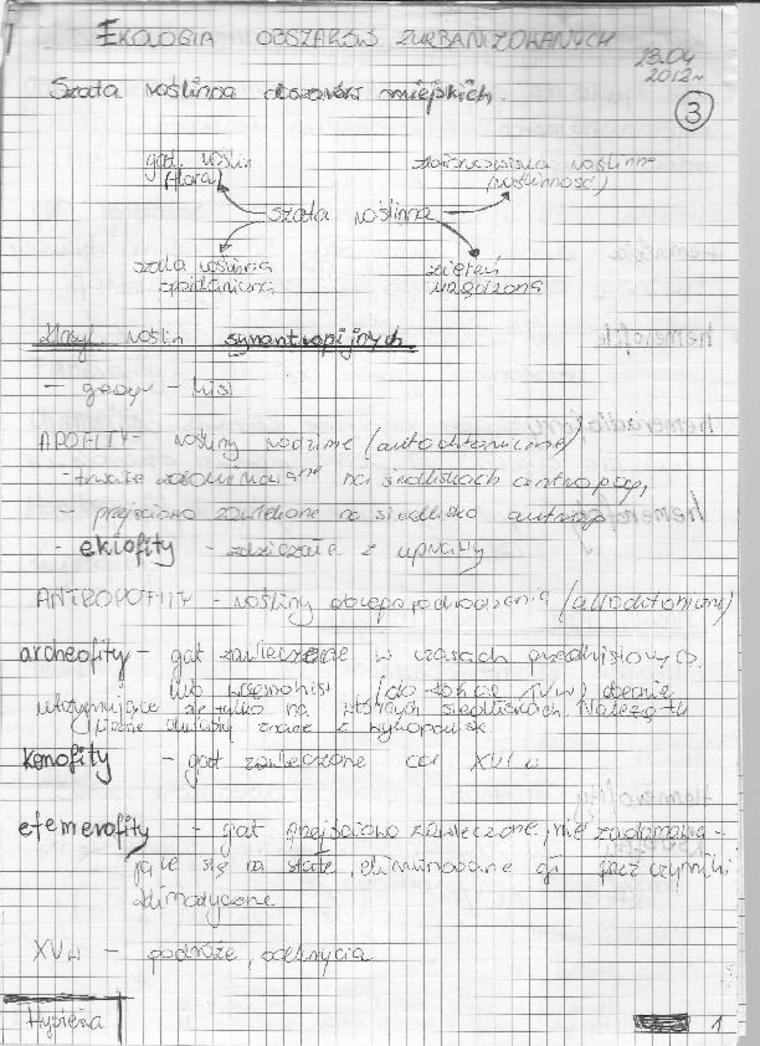 EKOLOGIA OBSZARÓW ZURBANIZOWANYCH
23.04
2012r
Szata roślinna obszarów miejskich
3
gat. roślin
(flora)
zbiorowiska roślinne
(roślinność)
szata roślinna
szata roślinna
spontaniczna
zieleń
urządzona
Klasyf. roślin synantropijnych
- geogr - hist
APOFITY - rośliny rodzime (autochtoniczne)
- trwale zadomowione na siedliskach antropog,
- przejściowo zawleczone na siedlisko antrop
- ekiofity - zdziczałe z uprawy
ANTROPOFITY - rośliny obcego pochodzenia (allochtoniczne)
archeofity - gat zawleczone w czasach przedhistorycz.
lub wczesnohist (do końca XVw) obecnie
utrzymujące się tylko na których siedliskach. Należą tu
znane z wykopalisk
Kenofity - gat zawleczone od XVI w
efemerofity - gat przejściowo zawleczone, nie zadomawia-
jące się na stałe, eliminowane gł przez czynniki
klimatyczne
XVw - podróże, odkrycia
Hypiena
1